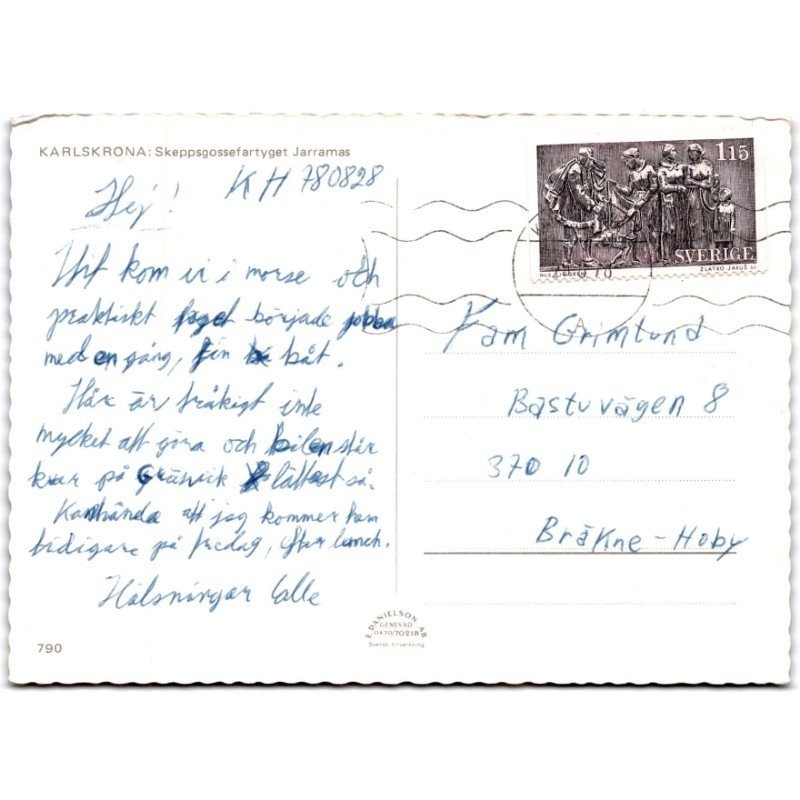 KARLSKRONA: Skeppsgossefartyget Jarramas
KH 780828
Hej!
Hit kom vi i morse och
praktiskt taget började jobba
med en gång, fin båt.
Här är tråkigt inte
mycket att göra och bilen står
kvar på Gräsvik lättast så.
Kanhända att jag kommer hem
tidigare på fredag, efter lunch.
Hälsningar Calle
790
E. DANIELSON AB
GENEVAD
0430/70218
Svensk tillverkning
115
SVERIGE
ZLATKO JAKUS SC
Fam Grimlund
Bastuvägen 8
370 10
Bräkne-Hoby